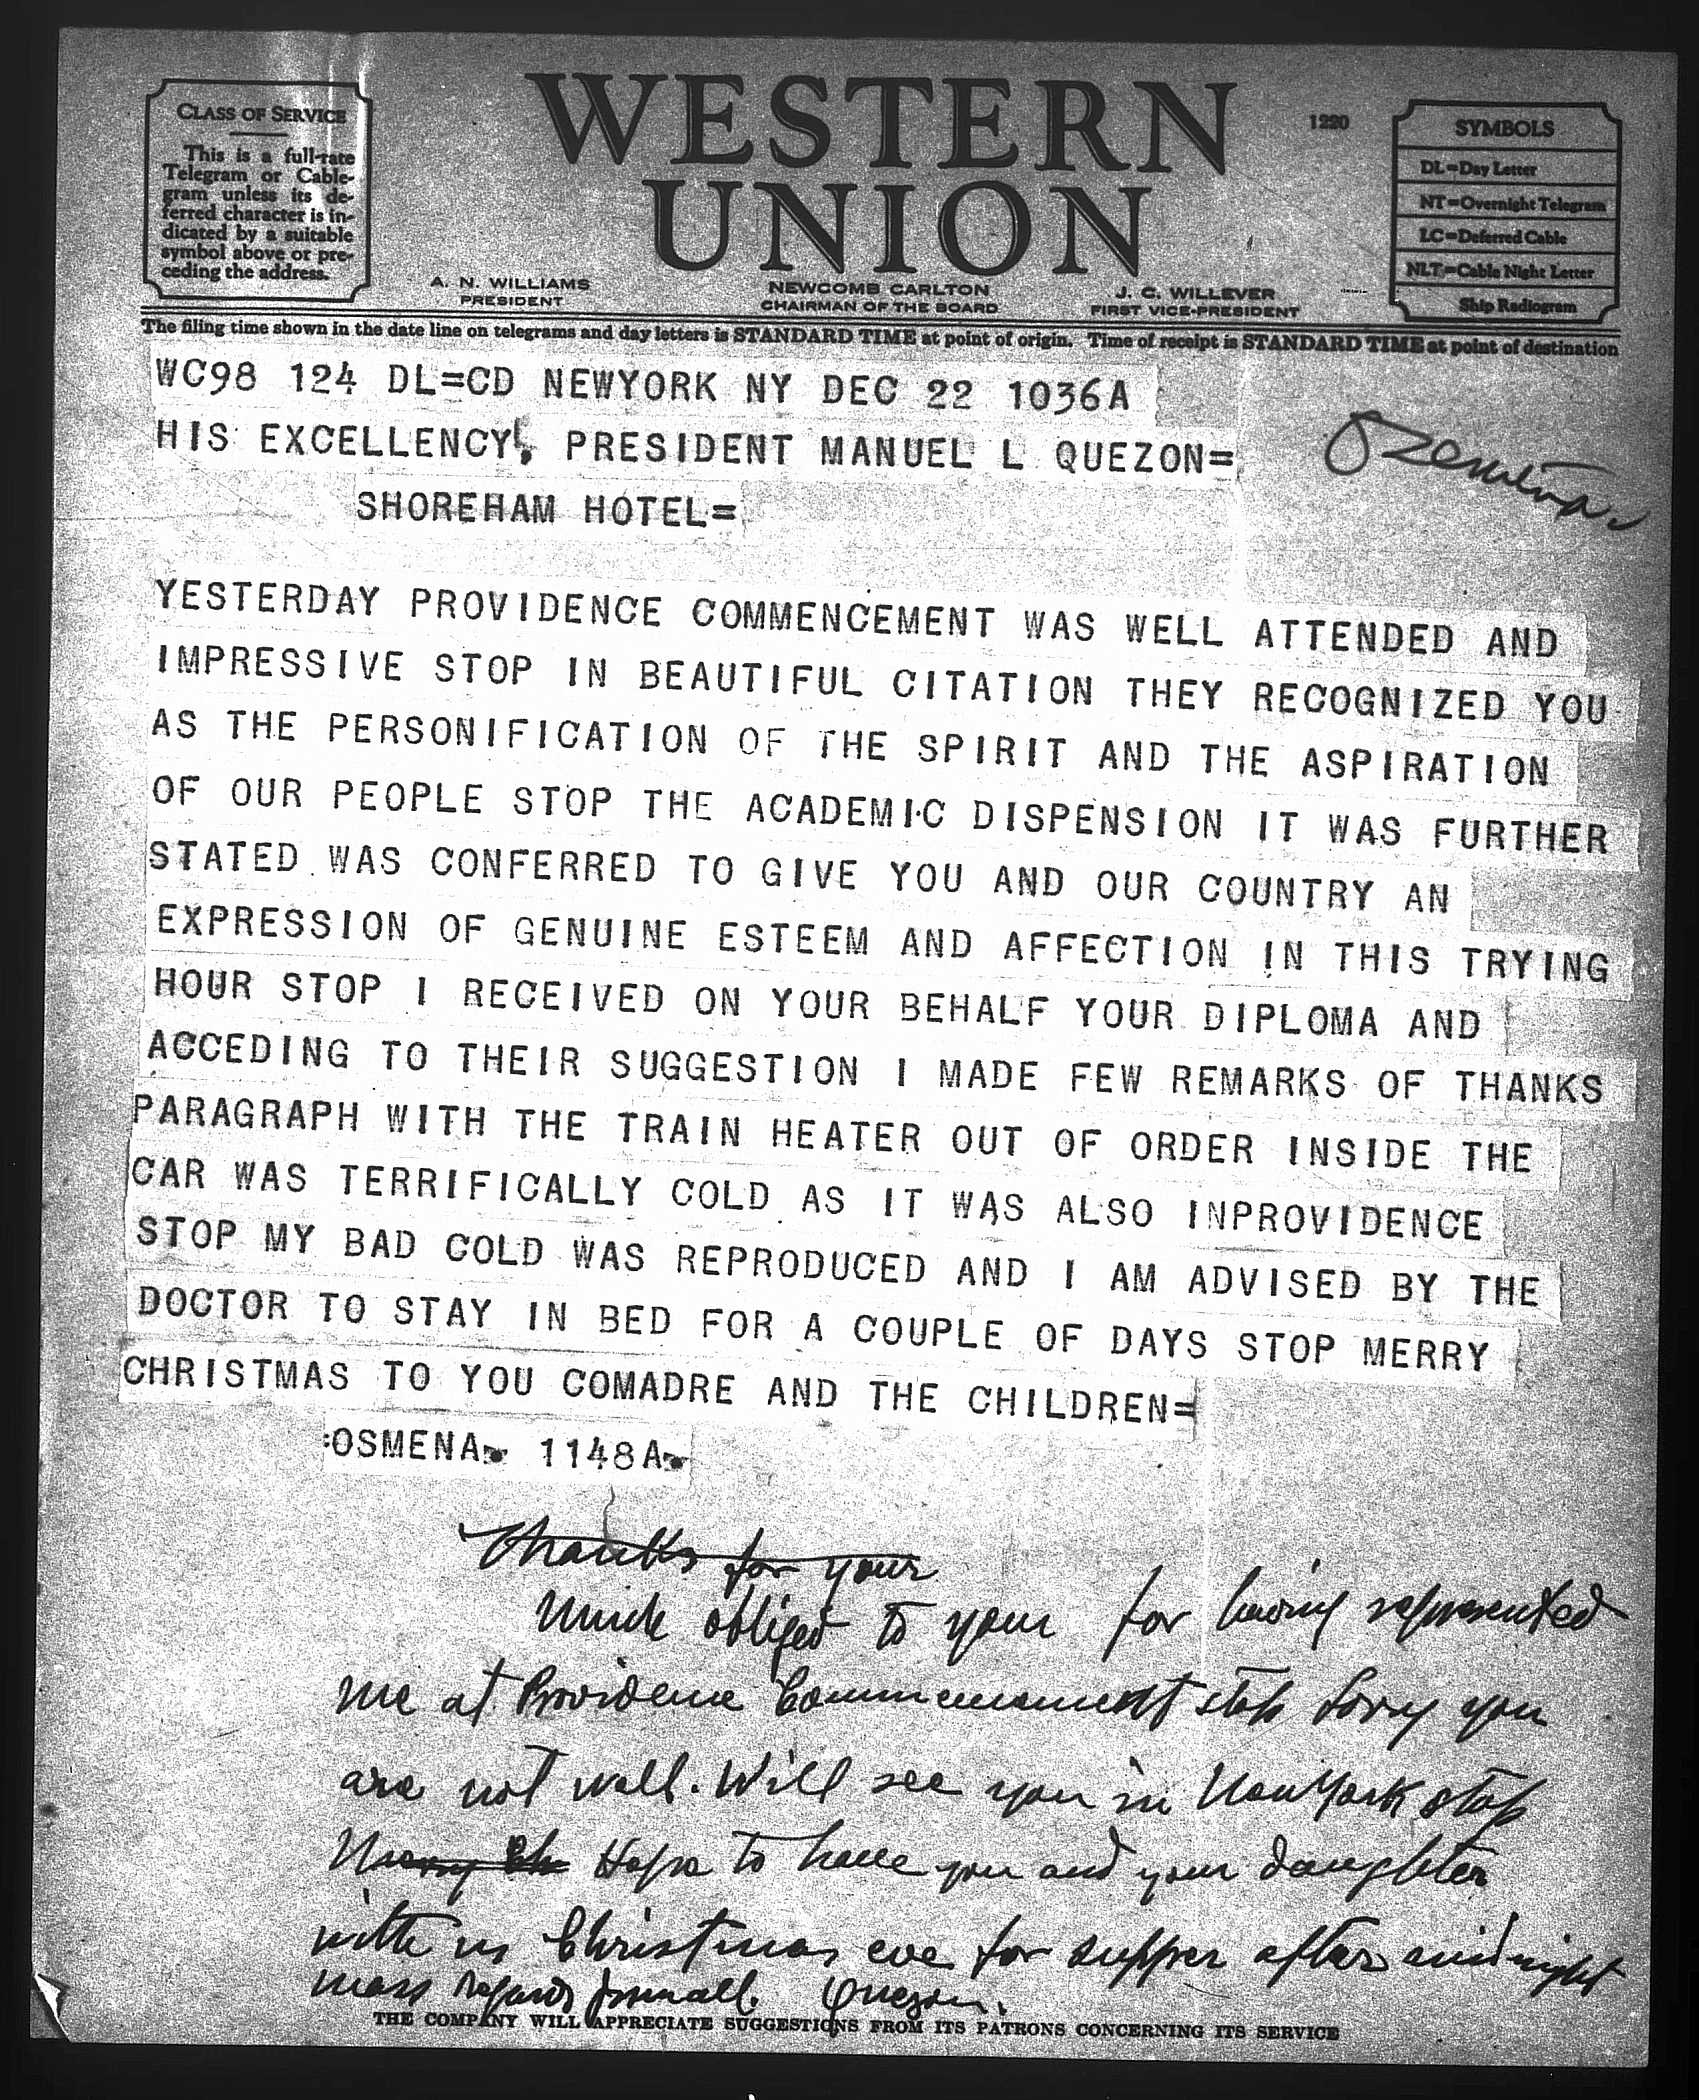 CLASS OF SERVICE
This is a full-rate
Telegram or Cable-
gram unless its de-
ferred character is in-
dicated by a suitable
symbol above or pre-
ceding the address.
WESTERN
UNION
1220
SYMBOLS
DL=Day Letter
NT=Overnight Telegram
LC=Deferred Cable
NLT=Cable Night Letter
Ship Radiogram
A. N. WILLIAMS
PRESIDENT
NEWCOMB CARLTON
CHAIRMAN OF THE BOARD
J. C. WILLEVER
FIRST VICE-PRESIDENT
The filing time shown in the date line on telegrams and day letters is STANDARD TIME at point of origin. Time of receipt is STANDARD TIME at point of destination
WC98 124 DL=CD NEWYORK NY DEC 22 1036A
HIS EXCELLENCY, PRESIDENT MANUEL L QUEZON=
SHOREHAM HOTEL=
Osmeña
YESTERDAY PROVIDENCE COMMENCEMENT WAS WELL ATTENDED AND
IMPRESSIVE STOP IN BEAUTIFUL CITATION THEY RECOGNIZED YOU
AS THE PERSONIFICATION OF THE SPIRIT AND THE ASPIRATION
OF OUR PEOPLE STOP THE ACADEMIC DISPENSION IT WAS FURTHER
STATED WAS CONFERRED TO GIVE YOU AND OUR COUNTRY AN
EXPRESSION OF GENUINE ESTEEM AND AFFECTION IN THIS TRYING
HOUR STOP I RECEIVED ON YOUR BEHALF YOUR DIPLOMA AND
ACCEDING TO THEIR SUGGESTION I MADE FEW REMARKS OF THANKS
PARAGRAPH WITH THE TRAIN HEATER OUT OF ORDER INSIDE THE
CAR WAS TERRIFICALLY COLD AS IT WAS ALSO INPROVIDENCE
STOP MY BAD COLD WAS REPRODUCED AND I AM ADVISED BY THE
DOCTOR TO STAY IN BED FOR A COUPLE OF DAYS STOP MERRY
CHRISTMAS TO YOU COMADRE AND THE CHILDREN=
:OSMENA. 1148A.
Thanks for your
Much obliged to your for having represented
me at Providence Commencement stop Sorry you
are not well. Will see you in New York stop
Merry Ch Hope to have you and your daughter
with us Christmas eve for supper after midnight
mass Regards from all. Quezon.
THE COMPANY WILL APPRECIATE SUGGESTIONS FROM ITS PATRONS CONCERNING ITS SERVICE